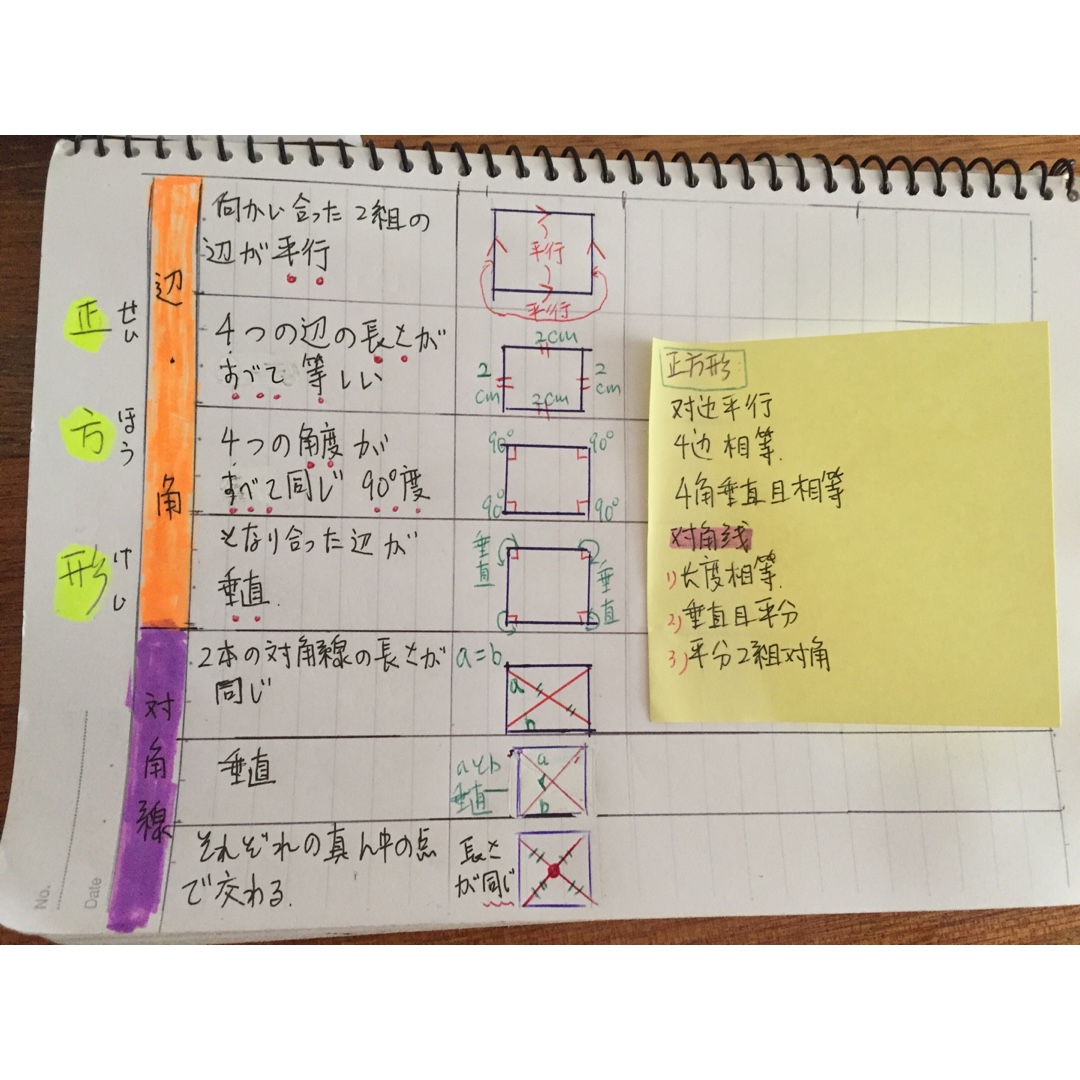 正方形
せい
ほう
けい
辺・角
向かい合った2組の
辺が平行
平行
平行
4つの辺の長さが
すべて等しい
2cm
2
cm
2
cm
2cm
4つの角度が
すべて同じ 90°度
90°
90°
90°
90°
となり合った辺が
垂直.
垂直
垂直
対角線
2本の対角線の長さが
同じ
a=b
a
b
垂直
aとb
垂直
a
b
それぞれの真ん中の点
で交わる.
長さ
が同じ
正方形
对边平行
4边相等.
4角垂直且相等
对角线
1)长度相等.
2)垂直且平分
3)平分2组对角
No.
Date